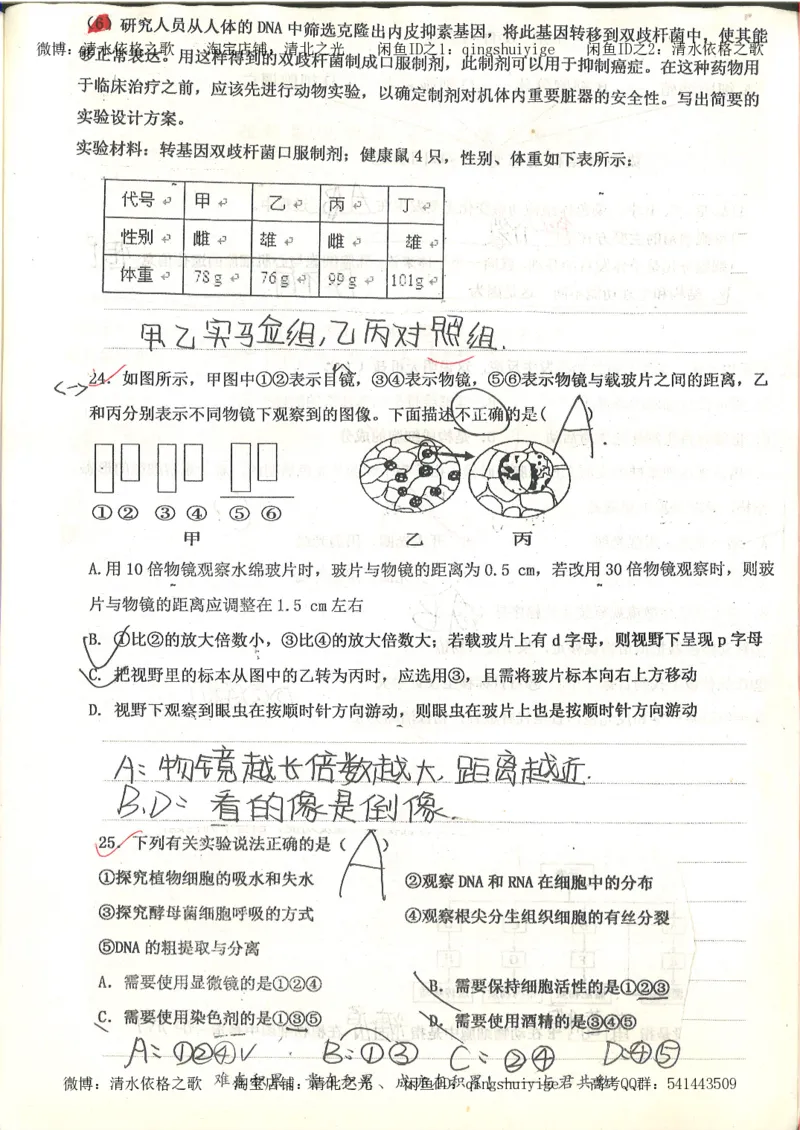 (6) 研究人员从人体的 DNA 中筛选克隆出内皮抑素基因，将此基因转移到双歧杆菌中，使其能
微博：清水依格之歌 淘宝店铺：清北之光 闲鱼ID之1：qingshuiyige 闲鱼ID之2：清水依格之歌
够正常表达。用这样得到的双歧杆菌制成口服制剂，此制剂可以用于抑制癌症。在这种药物用
于临床治疗之前，应该先进行动物实验，以确定制剂对机体内重要脏器的安全性。写出简要的
实验设计方案。
实验材料：转基因双歧杆菌口服制剂；健康鼠 4 只，性别、体重如下表所示：
代号 甲 乙 丙 丁
性别 雌 雄 雌 雄
体重 78 g 76 g 99 g 101g
甲乙实验组，乙丙对照组.
24. 如图所示，甲图中①②表示目镜，③④表示物镜，⑤⑥表示物镜与载玻片之间的距离，乙
和丙分别表示不同物镜下观察到的图像。下面描述不正确的是( A )
①② ③ ④ ⑤ ⑥
甲 乙 丙
A.用 10 倍物镜观察水绵玻片时，玻片与物镜的距离为 0.5 cm，若改用 30 倍物镜观察时，则玻
片与物镜的距离应调整在 1.5 cm 左右
B. ①比②的放大倍数小，③比④的放大倍数大；若载玻片上有 d 字母，则视野下呈现 p 字母
C. 把视野里的标本从图中的乙转为丙时，应选用③，且需将玻片标本向右上方移动
D. 视野下观察到眼虫在按顺时针方向游动，则眼虫在玻片上也是按顺时针方向游动
A: 物镜越长倍数越大，距离越近.
B.D: 看的像是倒像.
25. 下列有关实验说法正确的是( A )
①探究植物细胞的吸水和失水 ②观察 DNA 和 RNA 在细胞中的分布
③探究酵母菌细胞呼吸的方式 ④观察根尖分生组织细胞的有丝分裂
⑤DNA 的粗提取与分离
A. 需要使用显微镜的是①②④ B. 需要保持细胞活性的是①②③
C. 需要使用染色剂的是①③⑤ D. 需要使用酒精的是③④⑤
A: ①②④√ B: ①③ C: ②④ D: ④⑤
微博：清水依格之歌 淘宝店铺：清北之光 闲鱼ID：qingshuiyige 高考QQ群：541443509